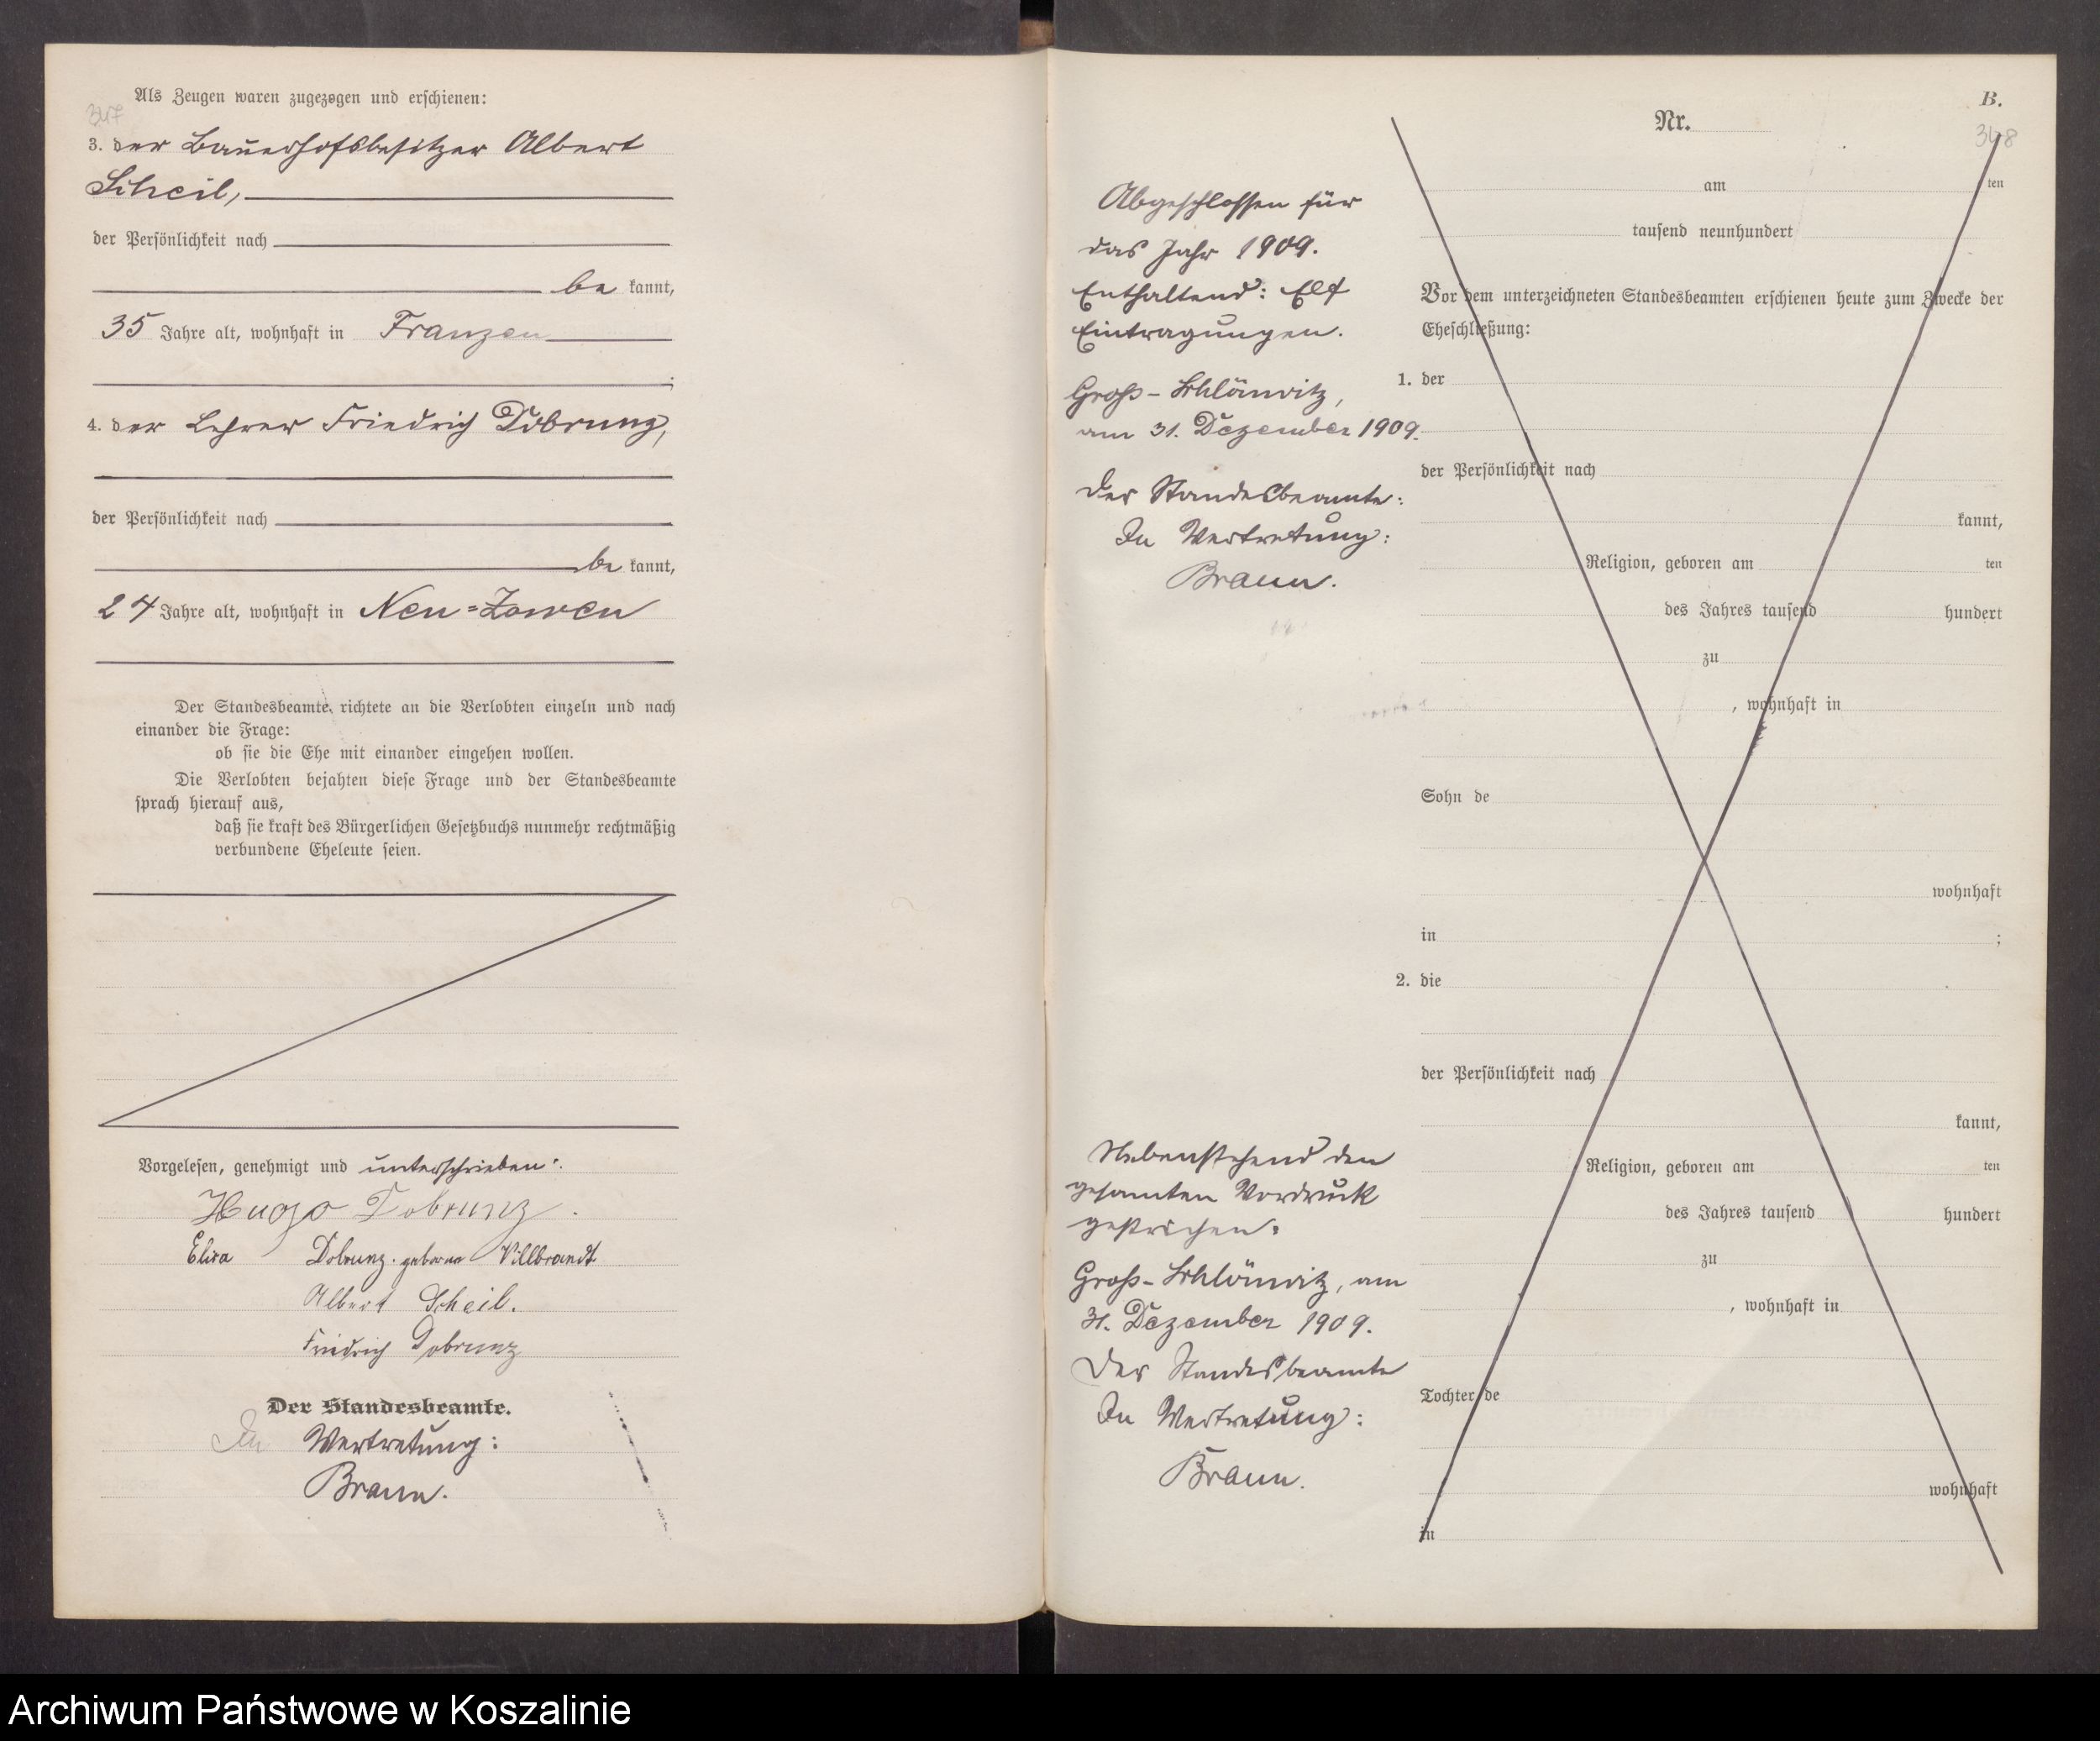 Als Zeugen waren zugezogen und erschienen:
347
3. der Bauerhofsbesitzer Albert
Scheil,
der Persönlichkeit nach
be kannt,
35 Jahre alt, wohnhaft in Franzen
;
4. der Lehrer Friedrich Dobrunz,
der Persönlichkeit nach
be kannt,
24 Jahre alt, wohnhaft in Neu=Zowen
Der Standesbeamte richtete an die Verlobten einzeln und nach
einander die Frage:
ob sie die Ehe mit einander eingehen wollen.
Die Verlobten bejahten diese Frage und der Standesbeamte
sprach hierauf aus,
daß sie kraft des Bürgerlichen Gesetzbuchs nunmehr rechtmäßig
verbundene Eheleute seien.
Vorgelesen, genehmigt und unterschrieben:
Hugo Dobrunz.
Elisa Dobrunz. geborene Villbrandt
Albert Scheil.
Friedrich Dobrunz
Der Standesbeamte.
In Vertretung:
Braun.
Abgeschlossen für
das Jahr 1909.
Enthaltend: Elf
Eintragungen.
Groß-Schlönwitz,
am 31. Dezember 1909.
Der Standesbeamte:
In Vertretung:
Braun.
Nebenstehend den
gesamten Vordruck
gestrichen.
Groß-Schlönwitz, am
31. Dezember 1909.
Der Standesbeamte
In Vertretung:
Braun.
B.
Nr.
348
am ten
tausend neunhundert
Vor dem unterzeichneten Standesbeamten erschienen heute zum Zwecke der
Eheschließung:
1. der
der Persönlichkeit nach
kannt,
Religion, geboren am ten
des Jahres tausend hundert
zu
, wohnhaft in
Sohn de
wohnhaft
in ;
2. die
der Persönlichkeit nach
kannt,
Religion, geboren am ten
des Jahres tausend hundert
zu
, wohnhaft in
Tochter de
wohnhaft
in
Archiwum Państwowe w Koszalinie